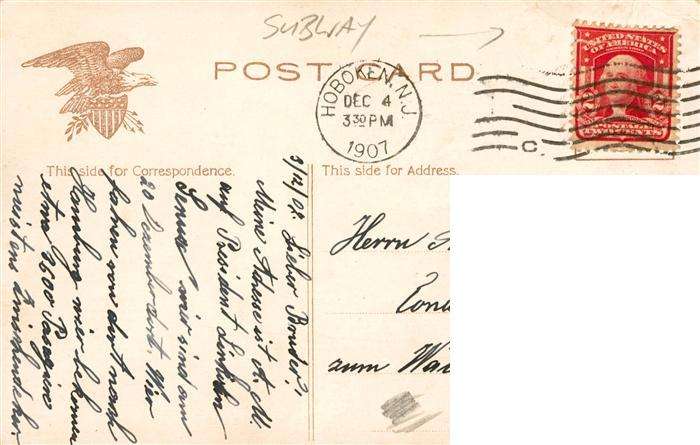 SUBWAY
POSTCARD
HOBOKEN, N.J.
DEC 4
3 30 PM
1907
C.
UNITED STATES
OF AMERICA
POSTAGE
TWO CENTS
This side for Correspondence.
This side for Address.
3/12/07. Lieber Bruder!
Meine Adresse ist A. M.
auf President Linkoln
wir sind am
20 Dezember dort. Wir
fahren von dort nach
Hamburg wir bekommen
etwa 3600
meistens
Herrn
zum